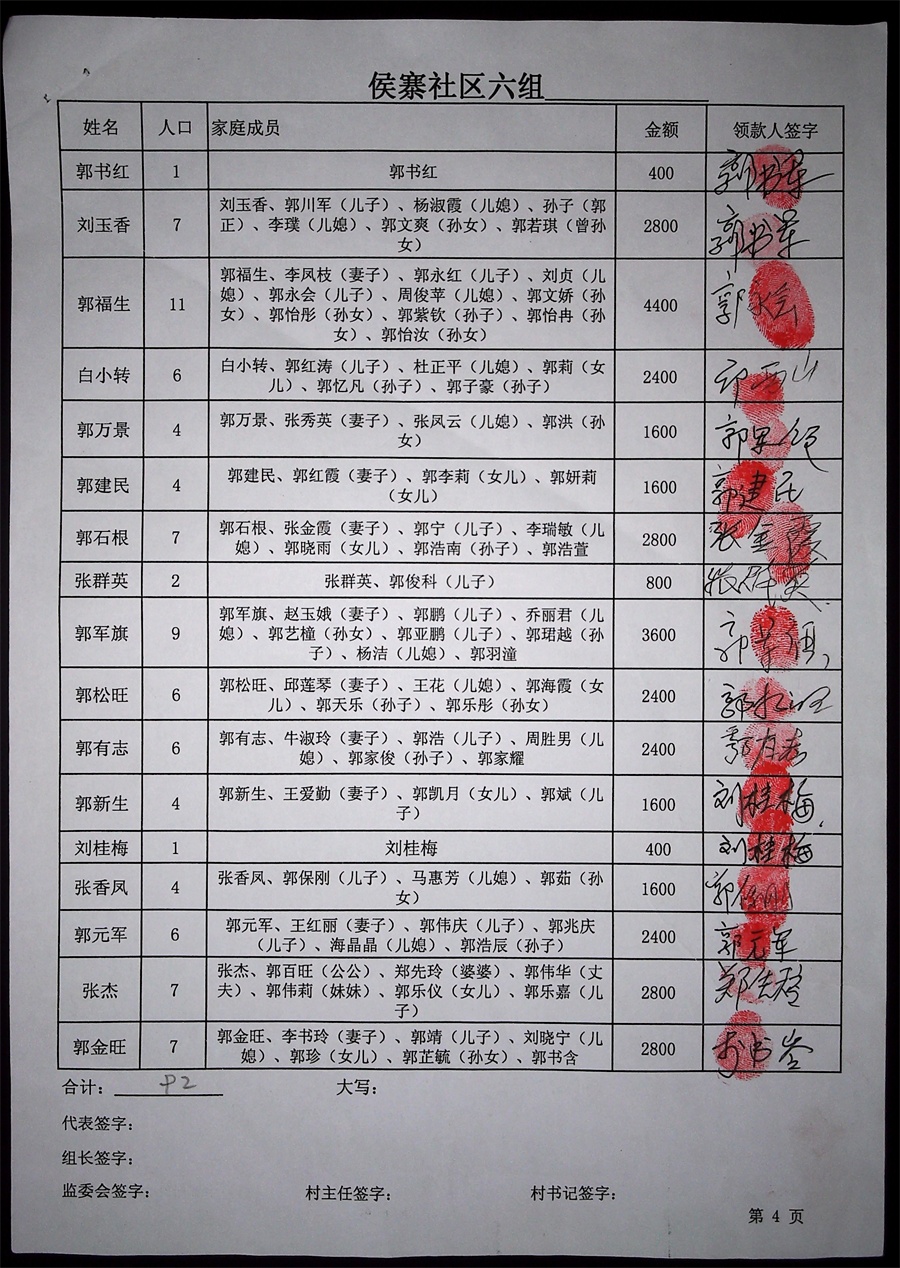 侯寨社区六组
姓名 人口 家庭成员 金额 领款人签字
郭书红 1 郭书红 400 郭书军
刘玉香 7 刘玉香、郭川军（儿子）、杨淑霞（儿媳）、孙子（郭
正）、李璞（儿媳）、郭文爽（孙女）、郭若琪（曾孙
女） 2800 郭书军
郭福生 11 郭福生、李凤枝（妻子）、郭永红（儿子）、刘贞（儿
媳）、郭永会（儿子）、周俊苹（儿媳）、郭文娇（孙
女）、郭怡彤（孙女）、郭紫钦（孙子）、郭怡冉（孙
女）、郭怡汝（孙女） 4400 郭永会
白小转 6 白小转、郭红涛（儿子）、杜正平（儿媳）、郭莉（女
儿）、郭忆凡（孙子）、郭子豪（孙子） 2400
郭万景 4 郭万景、张秀英（妻子）、张凤云（儿媳）、郭洪（孙
女） 1600
郭建民 4 郭建民、郭红霞（妻子）、郭李莉（女儿）、郭妍莉
（女儿） 1600 郭建民
郭石根 7 郭石根、张金霞（妻子）、郭宁（儿子）、李瑞敏（儿
媳）、郭晓雨（女儿）、郭浩南（孙子）、郭浩萱 2800 张金霞
张群英 2 张群英、郭俊科（儿子） 800 张群英
郭军旗 9 郭军旗、赵玉娥（妻子）、郭鹏（儿子）、乔丽君（儿
媳）、郭艺橦（孙女）、郭亚鹏（儿子）、郭珺越（孙
子）、杨洁（儿媳）、郭羽潼 3600
郭松旺 6 郭松旺、邱莲琴（妻子）、王花（儿媳）、郭海霞（女
儿）、郭天乐（孙子）、郭乐彤（孙女） 2400 郭松旺
郭有志 6 郭有志、牛淑玲（妻子）、郭浩（儿子）、周胜男（儿
媳）、郭家俊（孙子）、郭家耀 2400 郭有志
郭新生 4 郭新生、王爱勤（妻子）、郭凯月（女儿）、郭斌（儿
子） 1600 刘桂梅
刘桂梅 1 刘桂梅 400 刘桂梅
张香凤 4 张香凤、郭保刚（儿子）、马惠芳（儿媳）、郭茹（孙
女） 1600 郭保刚
郭元军 6 郭元军、王红丽（妻子）、郭伟庆（儿子）、郭兆庆
（儿子）、海晶晶（儿媳）、郭浩辰（孙子） 2400 郭元军
张杰 7 张杰、郭百旺（公公）、郑先玲（婆婆）、郭伟华（丈
夫）、郭伟莉（妹妹）、郭乐仪（女儿）、郭乐嘉（儿
子） 2800 郑先玲
郭金旺 7 郭金旺、李书玲（妻子）、郭靖（儿子）、刘晓宁（儿
媳）、郭珍（女儿）、郭芷毓（孙女）、郭书含 2800 李书玲
合计： 大写：
代表签字：
组长签字：
监委会签字： 村主任签字： 村书记签字：
第 4 页